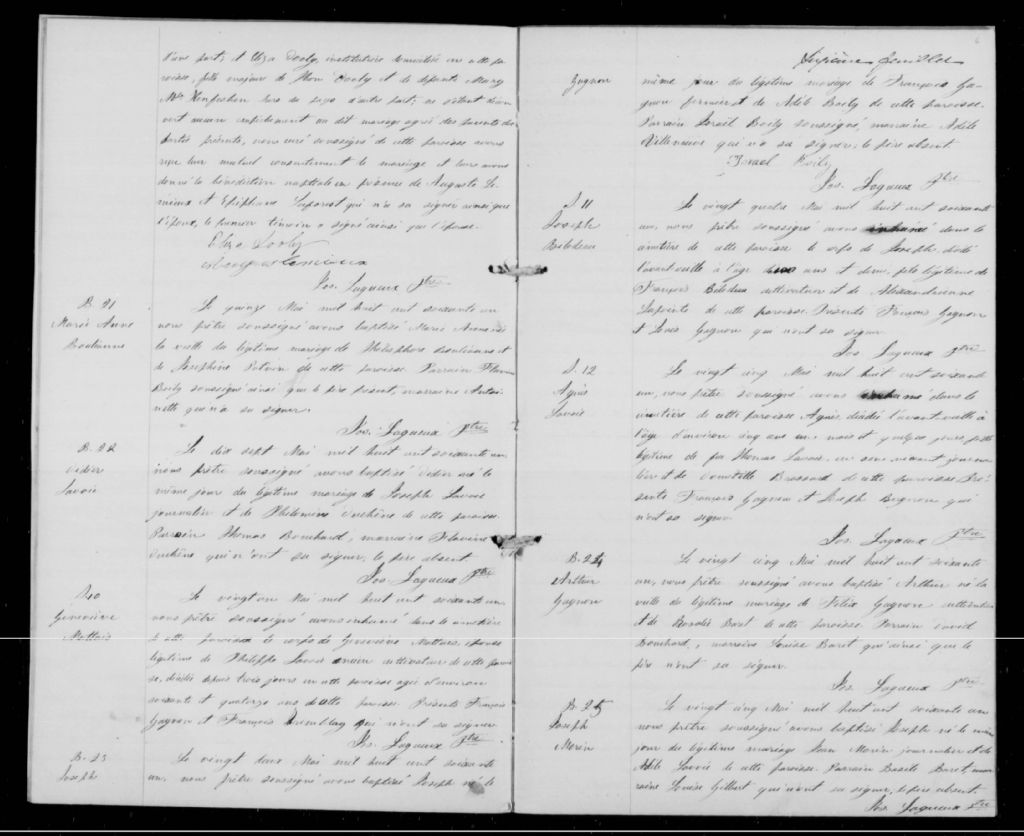 d'une part, et Eliza Dooly, institutrice domiciliée en cette pa-
roisse, fille majeure de Dooly et de défunte Mary
de ce pays d'autre part; ne s'étant décou-
vert aucun empêchement au dit mariage agréé des parents des
parties présents, nous curé soussigné de cette paroisse avons
reçu leur mutuel consentement de mariage et leur avons
donné la bénédiction nuptiale en présence de Auguste Le-
mieux et Epiphane Laforest qui n'a su signer ainsi que
l'époux, le premier témoin a signé ainsi que l'épouse.
Eliza Dooly
Auguste Lemieux
Jos. Lagueux Ptre
B. 21
Marie Anne
Boulianne
Le quinze Mai mil huit cent soixante un
nous prêtre soussigné avons baptisé Marie Anne née
la veille du légitime mariage de Thélesphore Boulianne et
de Joséphine Potvin de cette paroisse Parrain
Boily soussigné ainsi que le père présent, marraine Antoi-
nette qui n'a su signer.
Jos. Lagueux Ptre
B. 22
Didier
Savoie
Le dix sept Mai mil huit cent soixante un
nous prêtre soussigné avons baptisé Didier né le
même jour du légitime mariage de Joseph Savoie
journalier et de Philomène Duchêne de cette paroisse.
Parrain Thomas Bouchard, marraine Flavie
Duchêne qui n'ont su signer, le père absent.
Jos. Lagueux Ptre
S. 10
Geneviève
Mottais
Le vingt un Mai mil huit cent soixante un
nous prêtre soussigné avons inhumé dans le cimetière
de cette paroisse le corps de Geneviève Mottais, épouse
légitime de Philippe Savoie ancien cultivateur de cette parois-
se, décédée depuis trois jours en cette paroisse agée d'environ
soixante et quatorze ans de cette paroisse. Présents François
Gagnon et François Tremblay qui n'ont su signer
Jos. Lagueux Ptre
B. 23
Joseph
Le vingt deux Mai mil huit cent soixante
un, nous prêtre soussigné avons baptisé Joseph né le
6
Sixième feuillet
Gagnon
même jour du légitime mariage de François Ga-
gnon fermier et de Adèle Boily de cette paroisse.
Parrain Israël Boily soussigné, marraine Adèle
Villeneuve qui n'a su signer, le père absent
Israel Boily
Jos. Lagueux Ptre
S. 11
Joseph
Bilodeau
Le vingt quatre Mai mil huit cent soixante
un, nous prêtre soussigné avons inhumé dans le
cimétière de cette paroisse le corps de Joseph décédé
l'avant veille à l'âge deux ans et demi, fils légitime de
François Bilodeau cultivateur et de Alexandrienne
Lapointe de cette paroisse. Présents François Gagnon
et Louis Gagnon qui n'ont su signer.
Jos. Lagueux Ptre
S. 12
Agnès
Savoie
Le vingt cinq Mai mil huit cent soixante
un, nous prêtre soussigné avons inhumé dans le
cimétière de cette paroisse Agnès, décédée l'avant veille à
l'âge d'environ cinq ans un mois et quelques jours, fille
légitime de feu Thomas Savoie, en son vivant journa-
lier et de Domitille Brassard de cette paroisse. Pré-
sents François Gagnon et Joseph qui
n'ont su signer
Jos. Lagueux Ptre
B. 24
Arthur
Gagnon
Le vingt cinq Mai mil huit cent soixante
un, nous prêtre soussigné avons baptisé Arthur né la
veille du légitime mariage de Félix Gagnon cultivateur
et de Baret de cette paroisse Parrain David
Bouchard, marraine Louise Baret qui ainsi que le
père n'ont su signer.
Jos. Lagueux Ptre
B. 25
Joseph
Morin
Le vingt cinq Mai mil huit cent soixante un
nous prêtre soussigné avons baptisé Joseph né le même
jour du légitime mariage Jean Morin journalier et de
Adèle Savoie de cette paroisse. Parrain Baret, mar-
raine Louise Gilbert qui n'ont su signer, le père absent
Jos. Lagueux Ptre